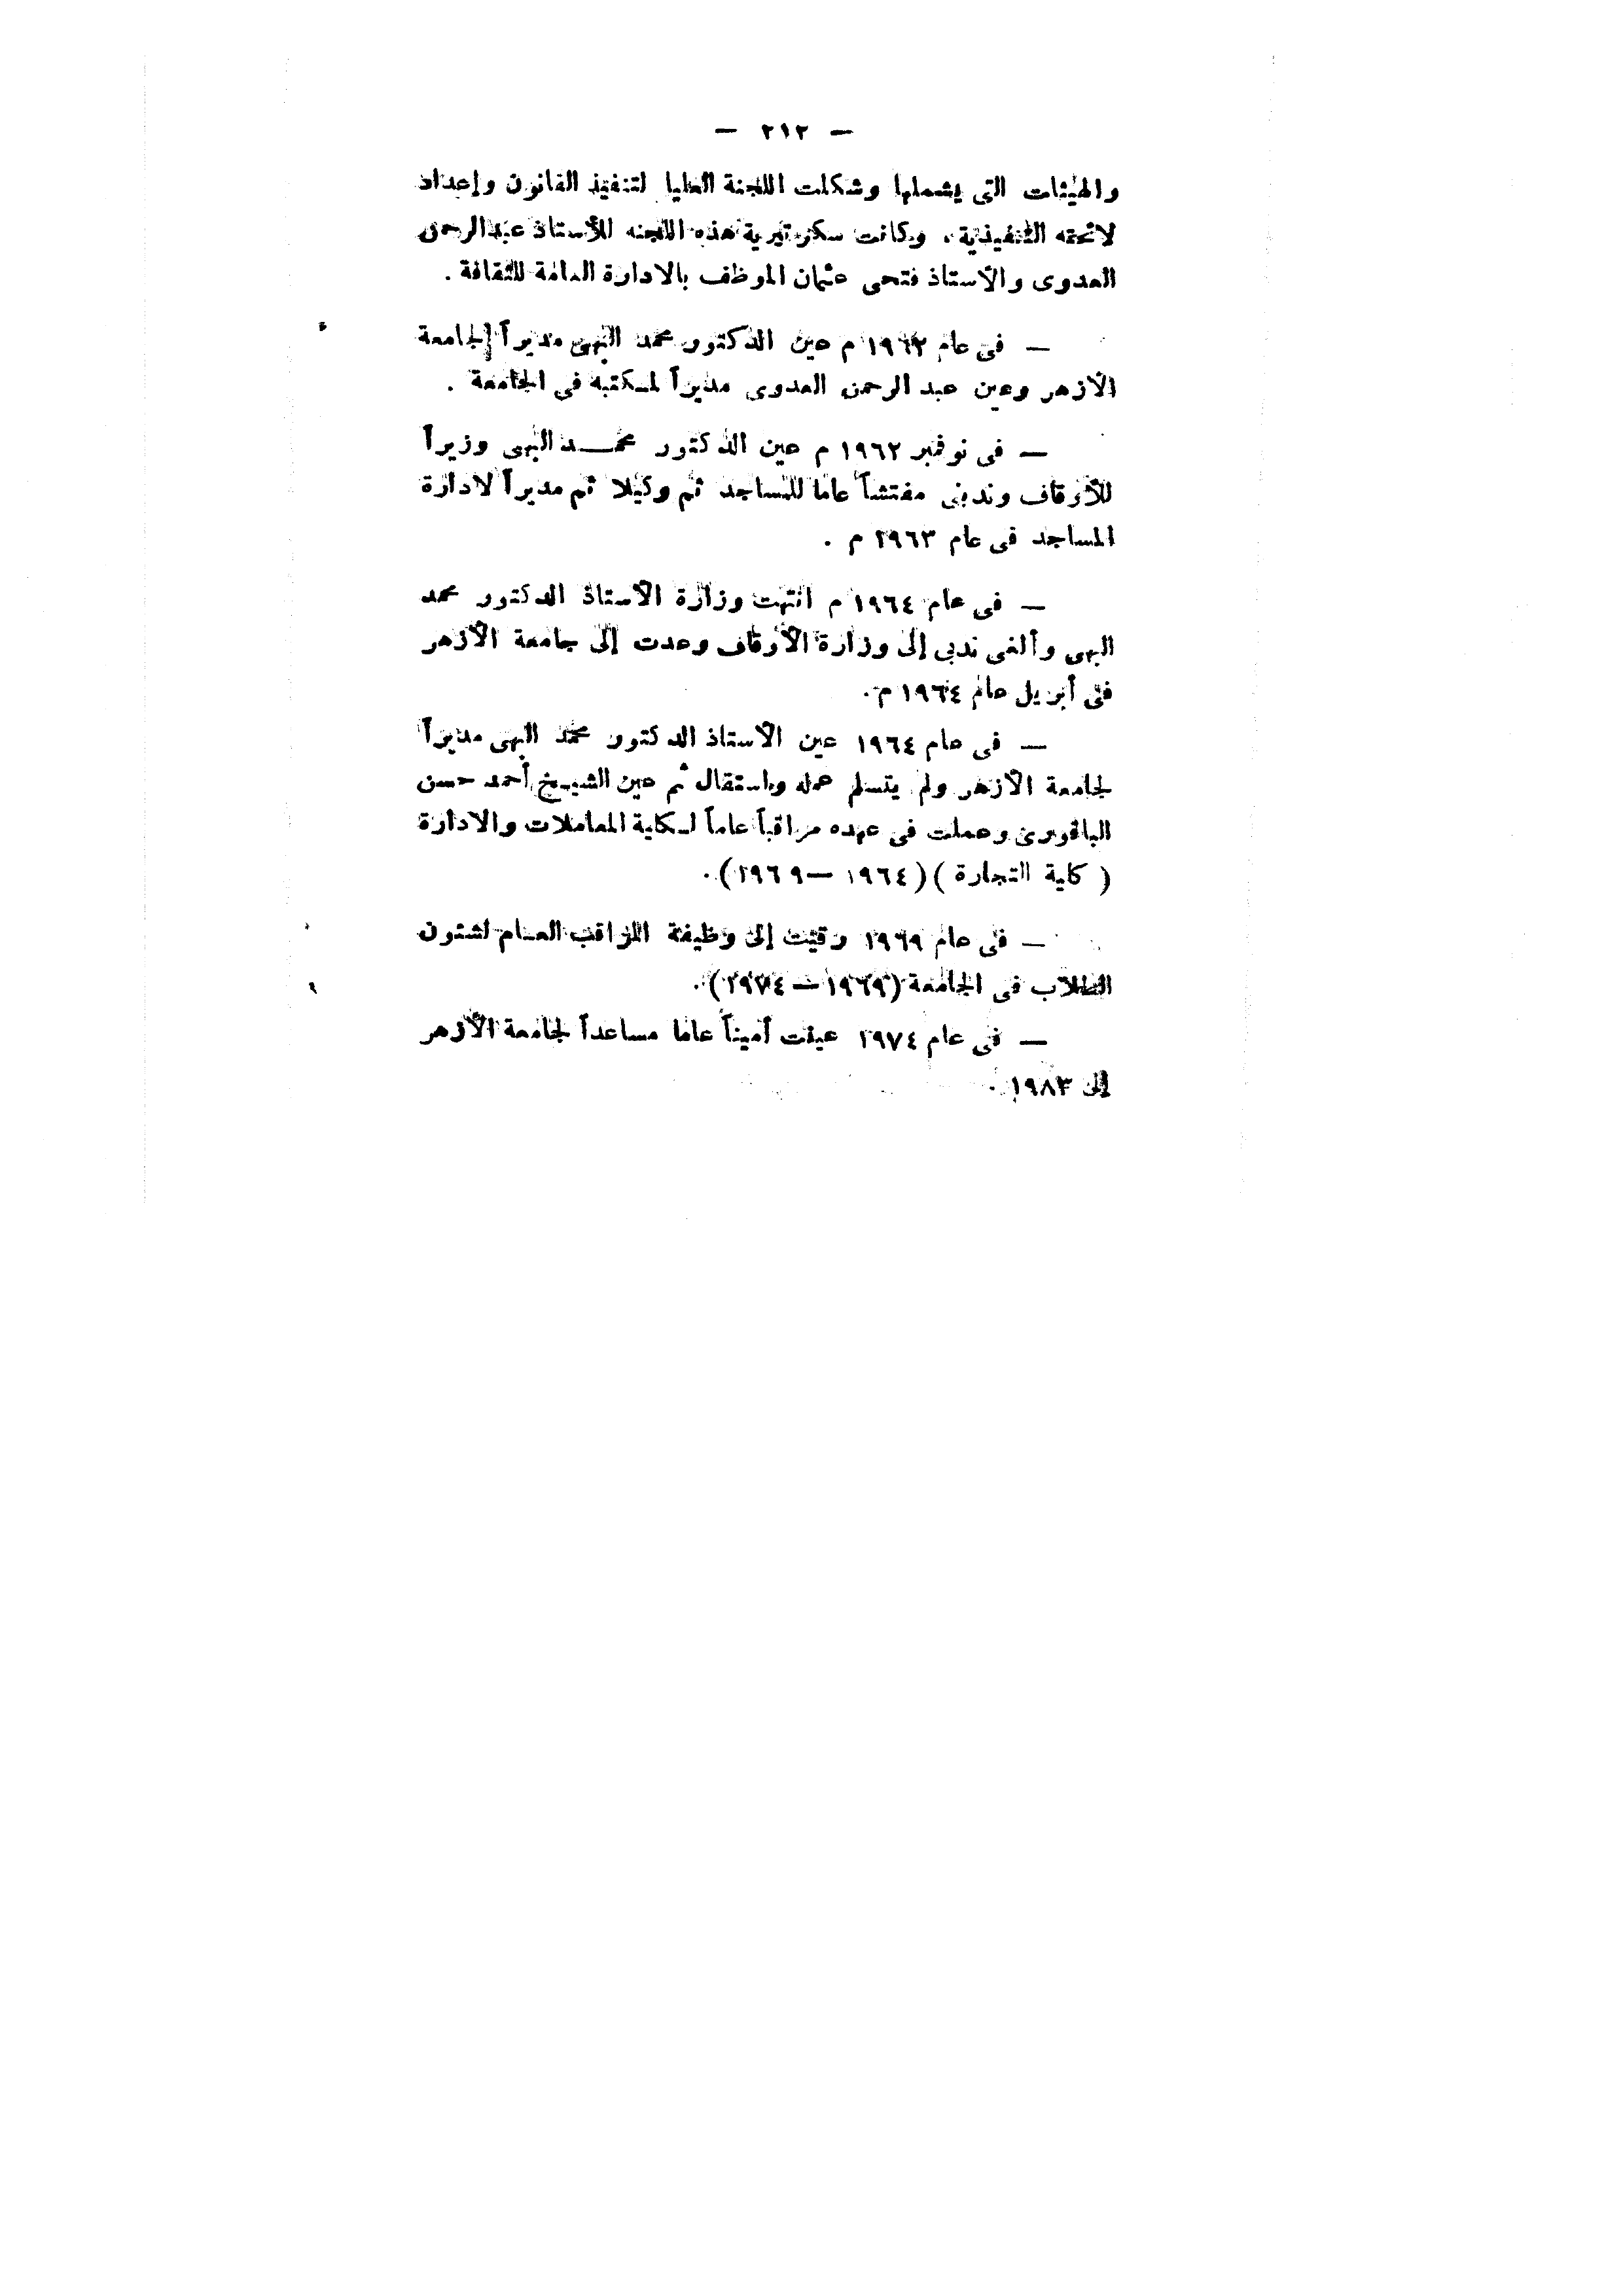 — ٢١٢ —
والهيئات التى يشملها وشكلت اللجنة العليا لتنفيذ القانون وإعداد
لائحته التنفيذية . وكانت سكرتيرية هذه اللجنه للأستاذ عبد الرحمن
العدوى والأستاذ فتحى عثمان الموظف بالادارة العامة للثقافة .
— فى عام ١٩٦٢ م عين الدكتور محمد البهى مديراً لجامعة
الأزهر وعين عبد الرحمن العدوى مديراً لمكتبه فى الجامعة .
— فى نوفمبر ١٩٦٢ م عين الدكتور محمد البهى وزيراً
للأوقاف وندبنى مفتشاً عاما للمساجد ثم وكيلا ثم مديراً لادارة
المساجد فى عام ١٩٦٣ م .
— فى عام ١٩٦٤ م انتهت وزارة الأستاذ الدكتور محمد
البهى وألغى ندبى إلى وزارة الأوقاف وعدت إلى جامعة الأزهر
فى أبريل عام ١٩٦٤ م .
— فى عام ١٩٦٤ عين الأستاذ الدكتور محمد البهى مديراً
لجامعة الأزهر ولم يتسلم عمله واستقال ثم عين الشيخ أحمد حسن
الباقورى وعملت فى عهده مراقباً عاماً لكلية المعاملات والادارة
( كلية التجارة ) ( ١٩٦٤ — ١٩٦٩ ) .
— فى عام ١٩٦٩ رقيت إلى وظيفة المراقب العام لشئون
الطلاب فى الجامعة ( ١٩٦٩ — ١٩٧٤ ) .
— فى عام ١٩٧٤ عينت أميناً عاما مساعداً لجامعة الأزهر
إلى ١٩٨٣ .